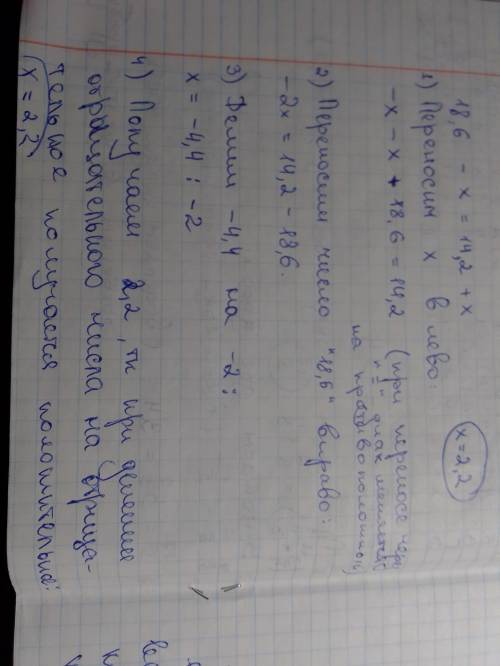 18,6 - x = 14,2 + x
x = 2,2
1) Переносим x в лево:
-x - x + 18,6 = 14,2 (при переносе чер
"=" знак меняется
на противоположный)
2) Переносим число "18,6" вправо:
-2x = 14,2 - 18,6.
3) Делим -4,4 на -2:
x = -4,4 : -2
4) Получаем 2,2, тк при делении
отрицательного числа на отрица-
тельное получается положительное:
x = 2,2